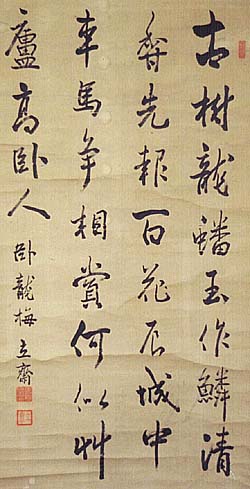 古樹龍蟠玉作鱗清
香先報百花辰城中
車馬爭相賞何似艸
廬高臥人
臥龍梅 立齋